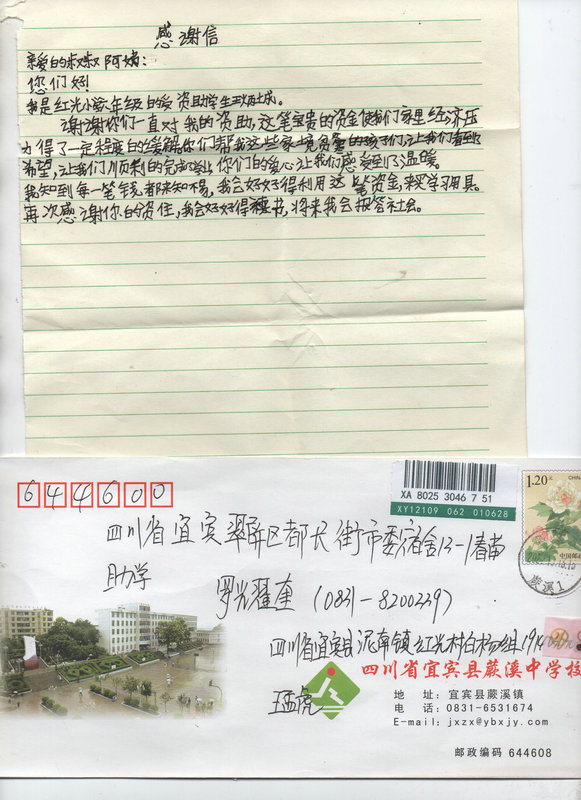 感谢信
亲爱的叔叔阿姨:
您们好!
我是红光小学六年级的受资助学生王
谢谢你们一直对我的资助,这笔宝贵的资金使我们家里经济压
力得了一定程度的缓解你们帮我这些家境贫寒的孩子们,让我们看到
希望,让我们顺利的完成学业你们的爱心让我们感受到了温暖。
我知到每一笔钱都来知不易,我会好好得利用这笔资金,来买学习用具。
再次感谢你的资住,我会好好得读书,将来我会报答社会。
644600
XA 8025 3046 7 51
XY12109 062 010628
1.20元
中国邮政
四川省宜宾翠屏区都长街市委宿舍13-1春苗
助学
罗光 (0831-8200239)
四川省宜宾县泥南镇红光村白杨组19
四川省宜宾县蕨溪中学校
王 虎
地 址:宜宾县蕨溪镇
电 话:0831-6531674
E-mail:jxzx@ybxjy.com
邮政编码 644608